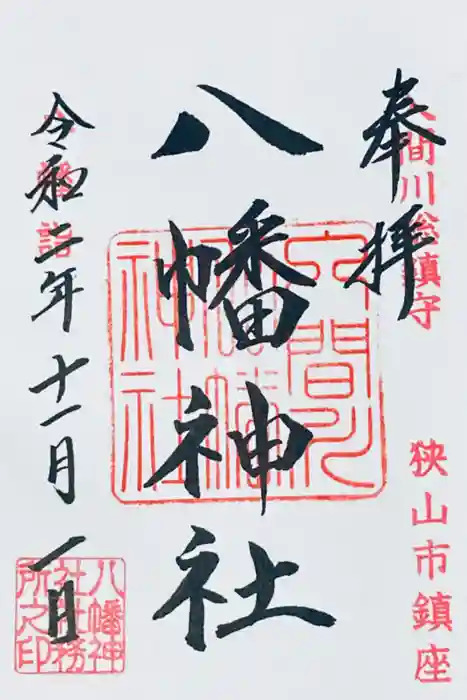 奉拝
入間川総鎮守
狭山市鎮座
八幡神社
入間川
八幡
神社
令和二年十一月一日
八幡神
社社務
所之印